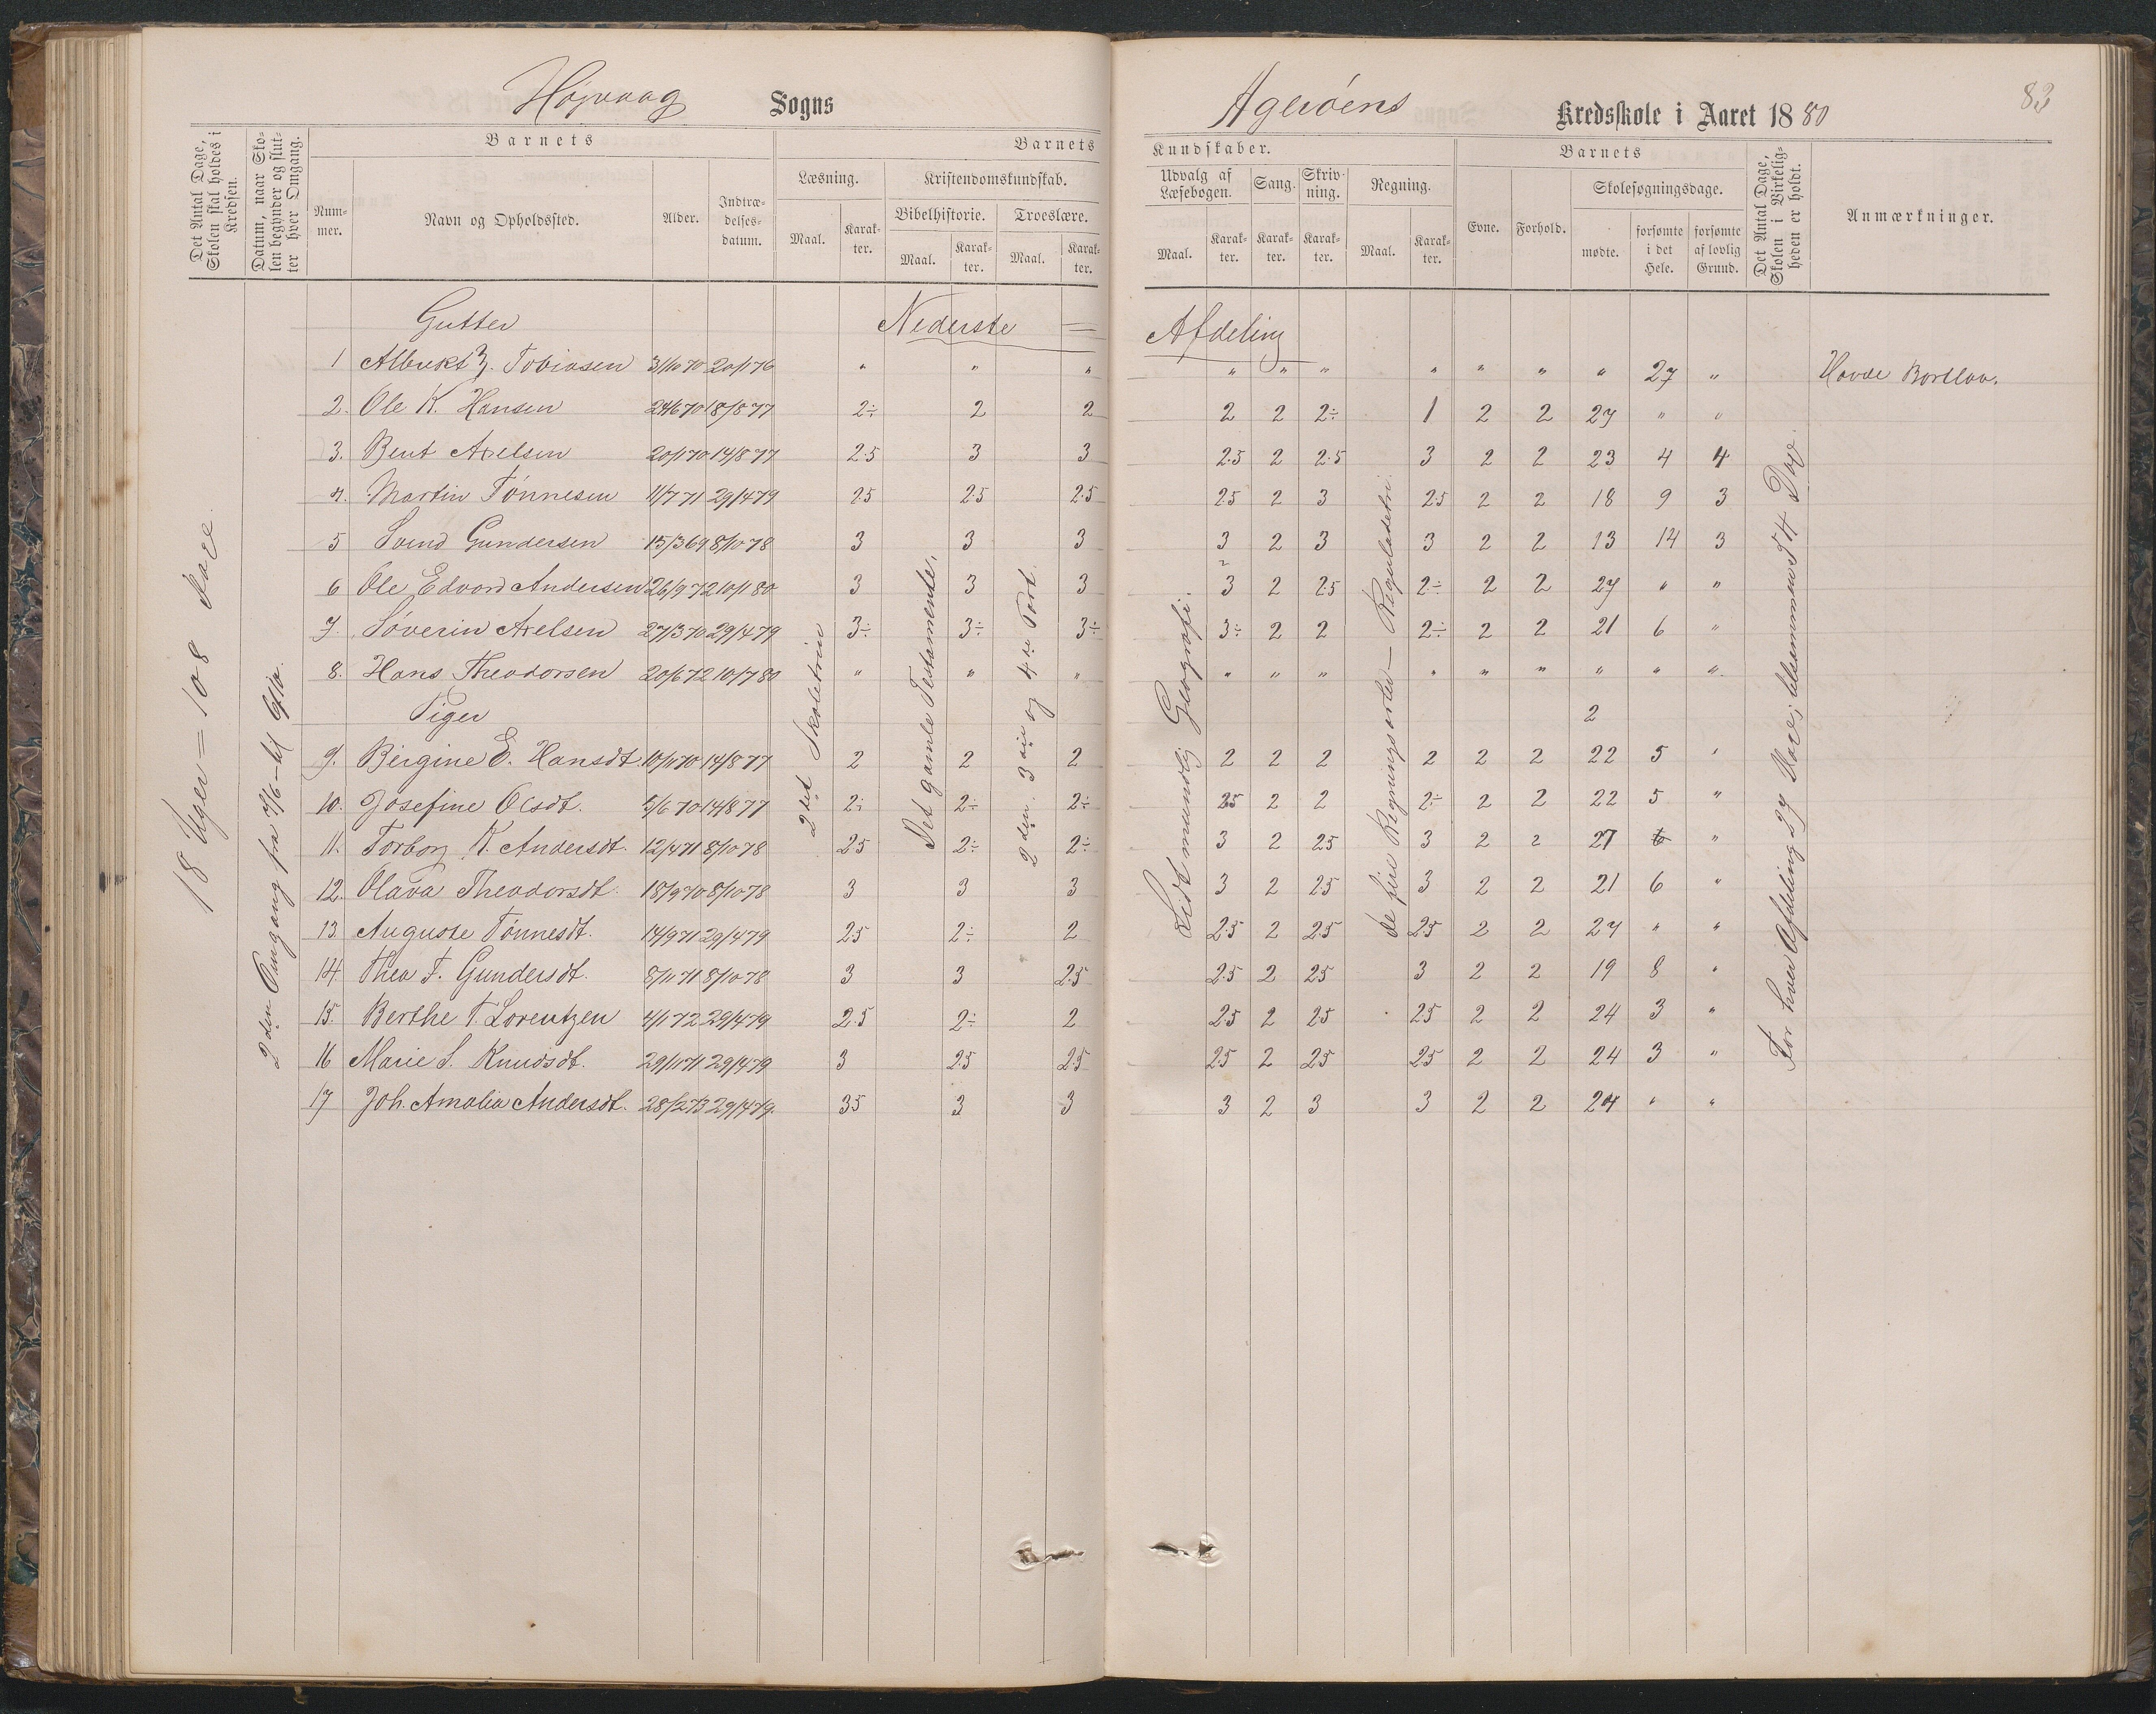 Højvaag Sogns
Agerøens Kredsskole i Aaret 1880
83
Det Antal Dage, Skolen skal holdes i Kredsen.
Datum, naar Skolen begynder og slutter hver Omgang.
Barnets
Nummer.
Navn og Opholdssted.
Alder.
Indtrædelsesdatum.
Barnets
Læsning.
Maal.
Karakter.
Kristendomskundskab.
Bibelhistorie.
Maal.
Karakter.
Troeslære.
Maal.
Karakter.
Kundskaber.
Udvalg af Læsebogen.
Maal.
Karakter.
Sang.
Karakter.
Skrivning.
Karakter.
Regning.
Maal.
Karakter.
Barnets
Evne.
Forhold.
Skolesøgningsdage.
mødte.
forsømte i det Hele.
forsømte af lovlig Grund.
Det Antal Dage, Skolen i Virkeligheden er holdt.
Anmærkninger.
18 Uger = 108 Dage.
2den Omgang fra
2det Skoletrin
Det gamle Testamente.
2den 3die og 4de Part.
Lidt mundtlig Geografi.
de fire Regningsarter — Reguladetri
For hver Afdeling 27 Dage; tilsammen 54 Dage
Gutter Nederste = Afdeling
1 Albrekt Z. Tobiasen 31/10 70 20/1 76 " " " " " " " " " " 27 "
2. Ole K. Hansen 24/6 70 18/8 77 2÷ 2 2 2 2 2÷ 1 2 2 27 " "
3. Bent Axelsen 20/1 70 14/8 77 2.5 3 3 2.5 2 2.5 3 2 2 23 4 4
4. Martin Tønnesen 11/7 71 29/4 79 25 2.5 2.5 25 2 3 25 2 2 18 9 3
5 Svend Gundersen 15/3 69 8/10 78 3 3 3 3 2 3 3 2 2 13 14 3
6 Ole Edvard Andersen 26/9 72 10/1 80 3 3 3 3 2 25 2÷ 2 2 27 " "
7. Søverin Axelsen 27/3 70 29/4 79 3÷ 3÷ 3÷ 3÷ 2 2 2÷ 2 2 21 6 "
8. Hans Theodorsen 20/6 72 10/7 80 " " " " " " " " " " " "
Piger 2
9. Bergine E. Hansdt. 10/11 70 14/8 77 2 2 2 2 2 2 2 2 2 22 5 "
10. Josefine Olsdt. 5/6 70 14/8 77 2÷ 2÷ 2÷ 25 2 2 2÷ 2 2 22 5 "
11. Torborg K. Andersdt. 12/4 71 8/10 78 25 2÷ 2÷ 3 2 25 3 2 2 27 "
12. Olava Theodorsdt. 18/9 70 8/10 78 3 3 3 3 2 25 3 2 2 21 6 "
13. Auguste Tønnesdt. 14/9 71 29/4 79 25 2÷ 2 2.5 2 2.5 25 2 2 27 " "
14 Thea T. Gundersdt. 8/11 71 8/10 78 3 3 2.5 2.5 2 25 3 2 2 19 8 "
15. Berthe T. Lorentzen 4/1 72 29/4 79 2.5 2÷ 2 25 2 25 25 2 2 24 3 "
16 Marie S. Knudsdt. 29/11 71 29/4 79 3 25 25 25 2 25 25 2 2 24 3 "
17 Joh. Amalia Andersdt. 28/2 73 29/4 79 35 3 3 3 2 3 3 2 2 24 " "